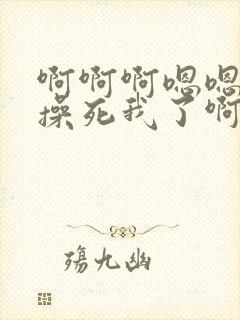 啊啊啊嗯嗯
操死我了啊
殇九幽